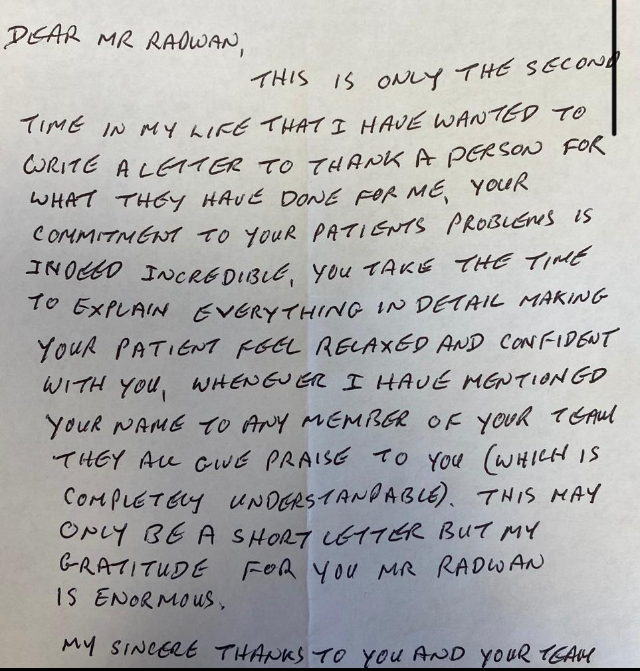 DEAR MR RADWAN,
THIS IS ONLY THE SECOND
TIME IN MY LIFE THAT I HAVE WANTED TO
WRITE A LETTER TO THANK A PERSON FOR
WHAT THEY HAVE DONE FOR ME, YOUR
COMMITMENT TO YOUR PATIENTS PROBLEMS IS
INDEED INCREDIBLE, YOU TAKE THE TIME
TO EXPLAIN EVERYTHING IN DETAIL MAKING
YOUR PATIENT FEEL RELAXED AND CONFIDENT
WITH YOU, WHENEVER I HAVE MENTIONED
YOUR NAME TO ANY MEMBER OF YOUR TEAM
THEY ALL GIVE PRAISE TO YOU (WHICH IS
COMPLETELY UNDERSTANDABLE). THIS MAY
ONLY BE A SHORT LETTER BUT MY
GRATITUDE FOR YOU MR RADWAN
IS ENORMOUS.
MY SINCERE THANKS TO YOU AND YOUR TEAM